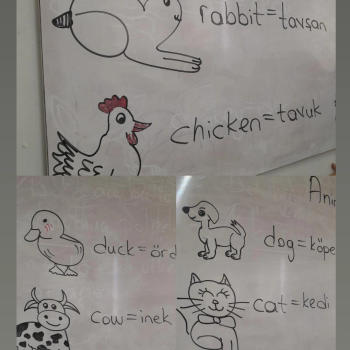 rabbit=tavşan
chicken=tavuk
duck=örd
cow=inek
Anin
dog=köpe
cat=kedi